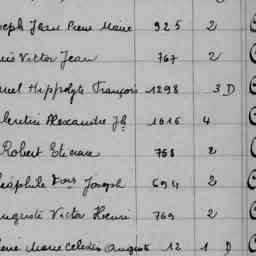 oseph Jean Pierre Marie 925 2
Victor Jean 767 2
uel Hippolyte François 1298 3 D
lentin Alexandre Jh 1016 4
Robert Etienne 768 2
héophile Joseph 694 2
Auguste Victor Henri 769 2
René Marie Celestin Auguste 12 1 D